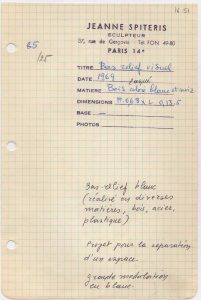 16 51
JEANNE SPITERIS
SCULPTEUR
57, rue de Gergovie - Tel. FON 49-80
PARIS 14e
65
/25
TITRE Bas relief visuel
DATE 1969
MATIERE Bois blanc et noir
DIMENSIONS H. 0.63 x L. 0,13,5
BASE
PHOTOS
Bas-relief blanc
(réalisé en diverses
matières, bois, acier,
plastique)
Projet pour la separation
d'un espace.
grande modulation
en blanc.